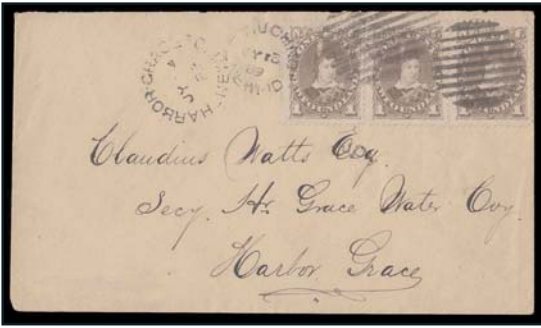 HARBOR-GRACE
JY
Claudius Watts Esq.
Secy. Hr. Grace Water Coy.
Harbor Grace